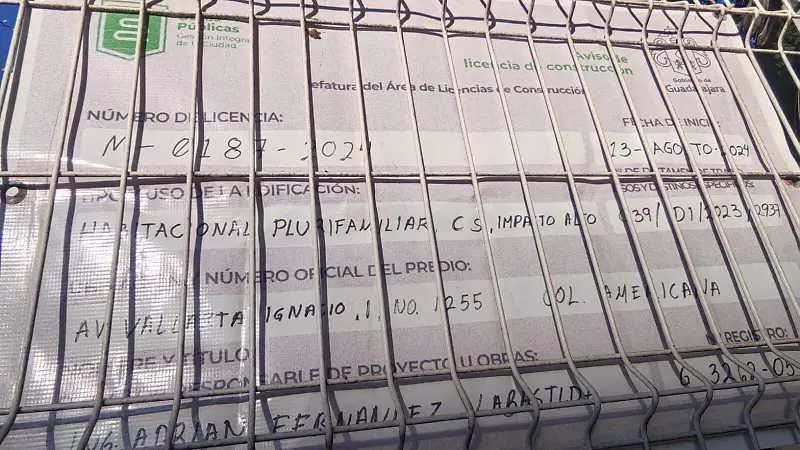 Públicas
Gestión Integral
de la Ciudad
Aviso de
licencia de construcción
Gobierno de
Guadalajara
Jefatura del Área de Licencias de Construcción
NÚMERO DE LICENCIA:
FECHA DE INICIO:
N-0187-2024
13-AGOSTO-2024
TIPO Y USO DE LA EDIFICACIÓN:
USOS Y DESTINOS ESPECÍFICOS:
HABITACIONAL PLURIFAMILIAR, CS, IMPATO ALTO
039/D1/2023/2937
NÚMERO OFICIAL DEL PREDIO:
AV VALLARTA IGNACIO .L. NO. 1255 COL. AMERICANA
NOMBRE Y TÍTULO
RESPONSABLE DE PROYECTO U OBRAS:
Nº REGISTRO:
ING. ADRIAN FERNANDEZ LABASTIDA
3268-05